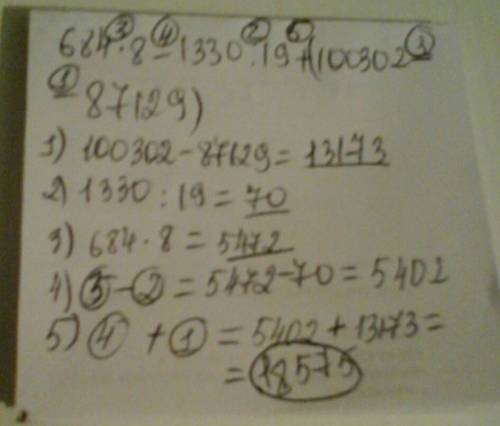 684 · 8 - 1330 : 19 + (100302 -
87129)
1) 100302 - 87129 = 13173
2) 1330 : 19 = 70
3) 684 · 8 = 5472
4) ③ - ② = 5472 - 70 = 5402
5) ④ + ① = 5402 + 13173 =
= 18575